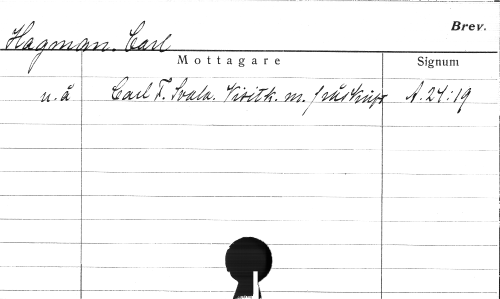 Brev.
Hagman. Carl
Mottagare Signum
u. å Carl F. Svala. Visitk. m. påskrift A. 24:19